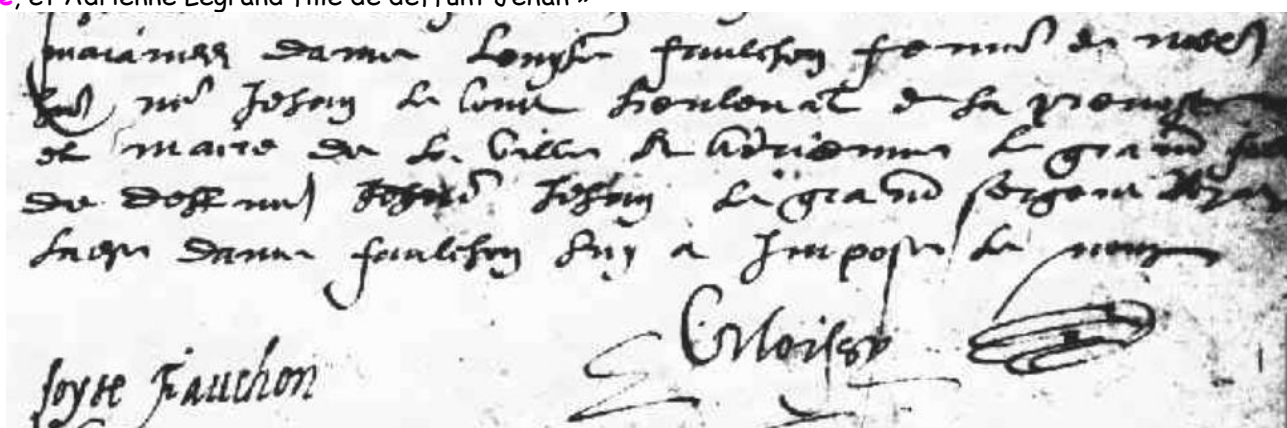 e, et Adrienne Legrand fille de deffunt Jehan »
maraines dame Loyse faulchon femme de
me Jehan le lieutenant de la prevoste
et maire de la ville & Adrienne le grand
de deffunct Jehan le grand sergent Royal
dame faulchon luy a Impose le nom
loyse Fauchon